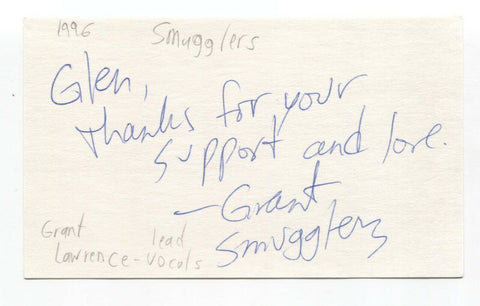 1996 Smugglers
Glen,
thanks for your
support and love.
—Grant
Smugglers
Grant lead
Lawrence-vocals